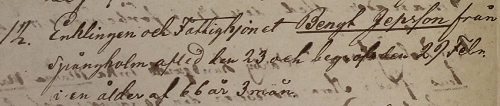 12. Enklingen och Fattighjonet Bengt Jepsson från
Spångholm afled den 23 och begrofs den 29 Febr.
i en ålder af 66 år 3 mån.